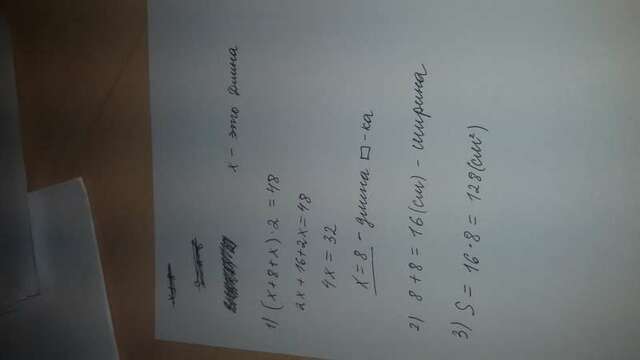 x – это длина
1) (x+8+x)·2 = 48
2x+16+2x=48
4x = 32
x=8 – длина □-ка
2) 8+8=16(см) – ширина
3) S = 16·8 = 128(см²)